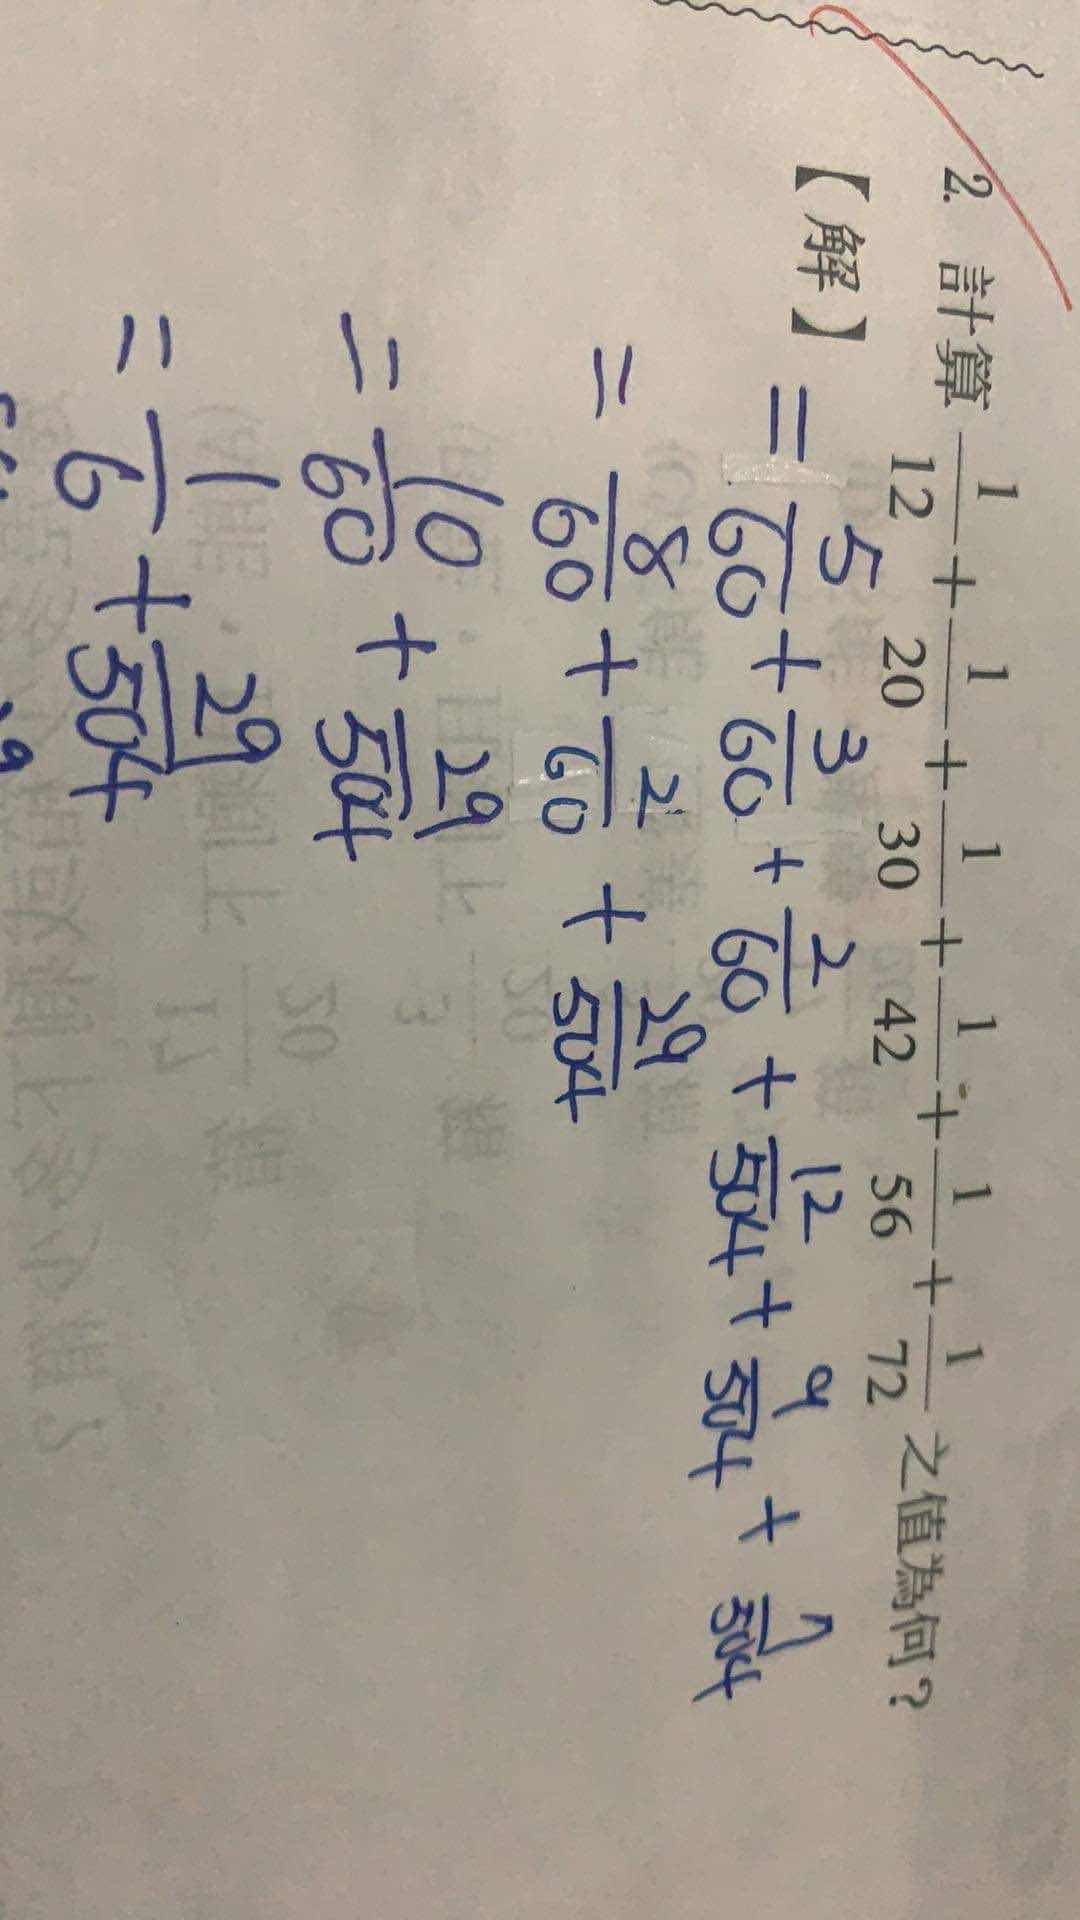 2. 計算 1/12 + 1/20 + 1/30 + 1/42 + 1/56 + 1/72 之值為何?
【解】 = 5/60 + 3/60 + 2/60 + 12/504 + 9/504 + 7/504
= 8/60 + 2/60 + 29/504
= 10/60 + 29/504
= 1/6 + 29/504